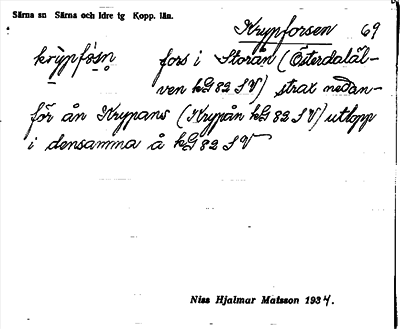 Särna sn Särna och Idre tg Kopp. län.
Krypforsen 69
krypfo̱ṣn fors i Storån (Österdaläl-
ven kG 82 SV) strax nedan-
för ån Krypans (Krypån kG 82 SV) utlopp
i densamma å kG 82 SV
Niss Hjalmar Matsson 1934.